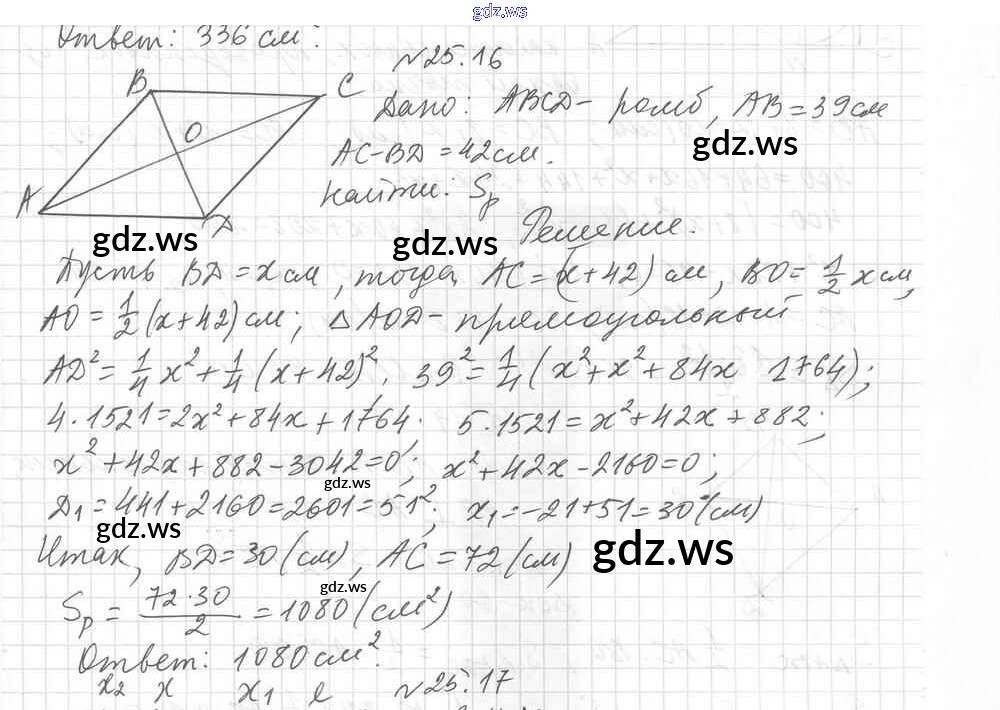 gdz.ws
Ответ: 336 см².
№25.16
B C
O
A D
Дано: ABCD - ромб, AB = 39 см
AC-BD = 42 см.
gdz.ws
Найти: Sр
Решение.
gdz.ws
gdz.ws
Пусть BD = x см, тогда AC = (x+42) см, BO = 1/2 x см,
AO = 1/2 (x+42) см; △AOD - прямоугольный
AD² = 1/4 x² + 1/4 (x+42)², 39² = 1/4 (x²+x²+84x 1764);
4·1521 = 2x²+84x+1764; 5·1521 = x²+42x+882;
x²+42x+882-3042=0; x²+42x-2160=0;
gdz.ws
D₁ = 441+2160=2601=51²; x₁=-21+51=30 (см)
gdz.ws
Итак, BD = 30 (см), AC = 72 (см)
gdz.ws
gdz.ws
Sр = 72·30/2 = 1080 (см²)
Ответ: 1080 см².
x₂ x x₁ e №25.17